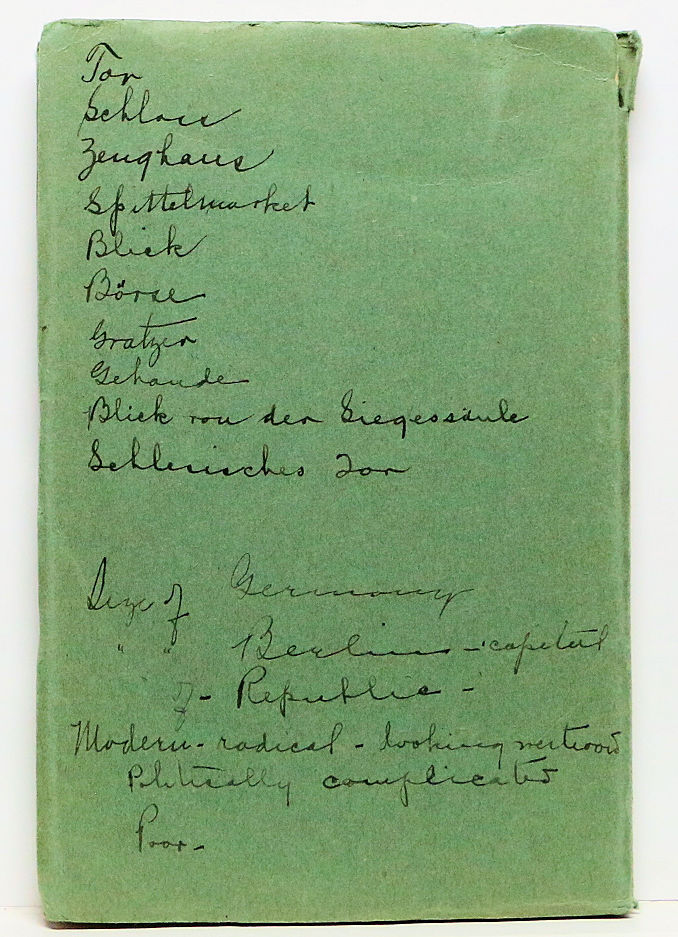 Tor
Schloss
Zeughaus
Spittelmarket
Blick
Börse
Gratzer
Gebaude
Blick von der Siegessäule
Schlesisches Tor
Size of Germany
" " Berlin - capital
of - Republic -
Modern - radical - looking westward
Politically complicated
Poor -